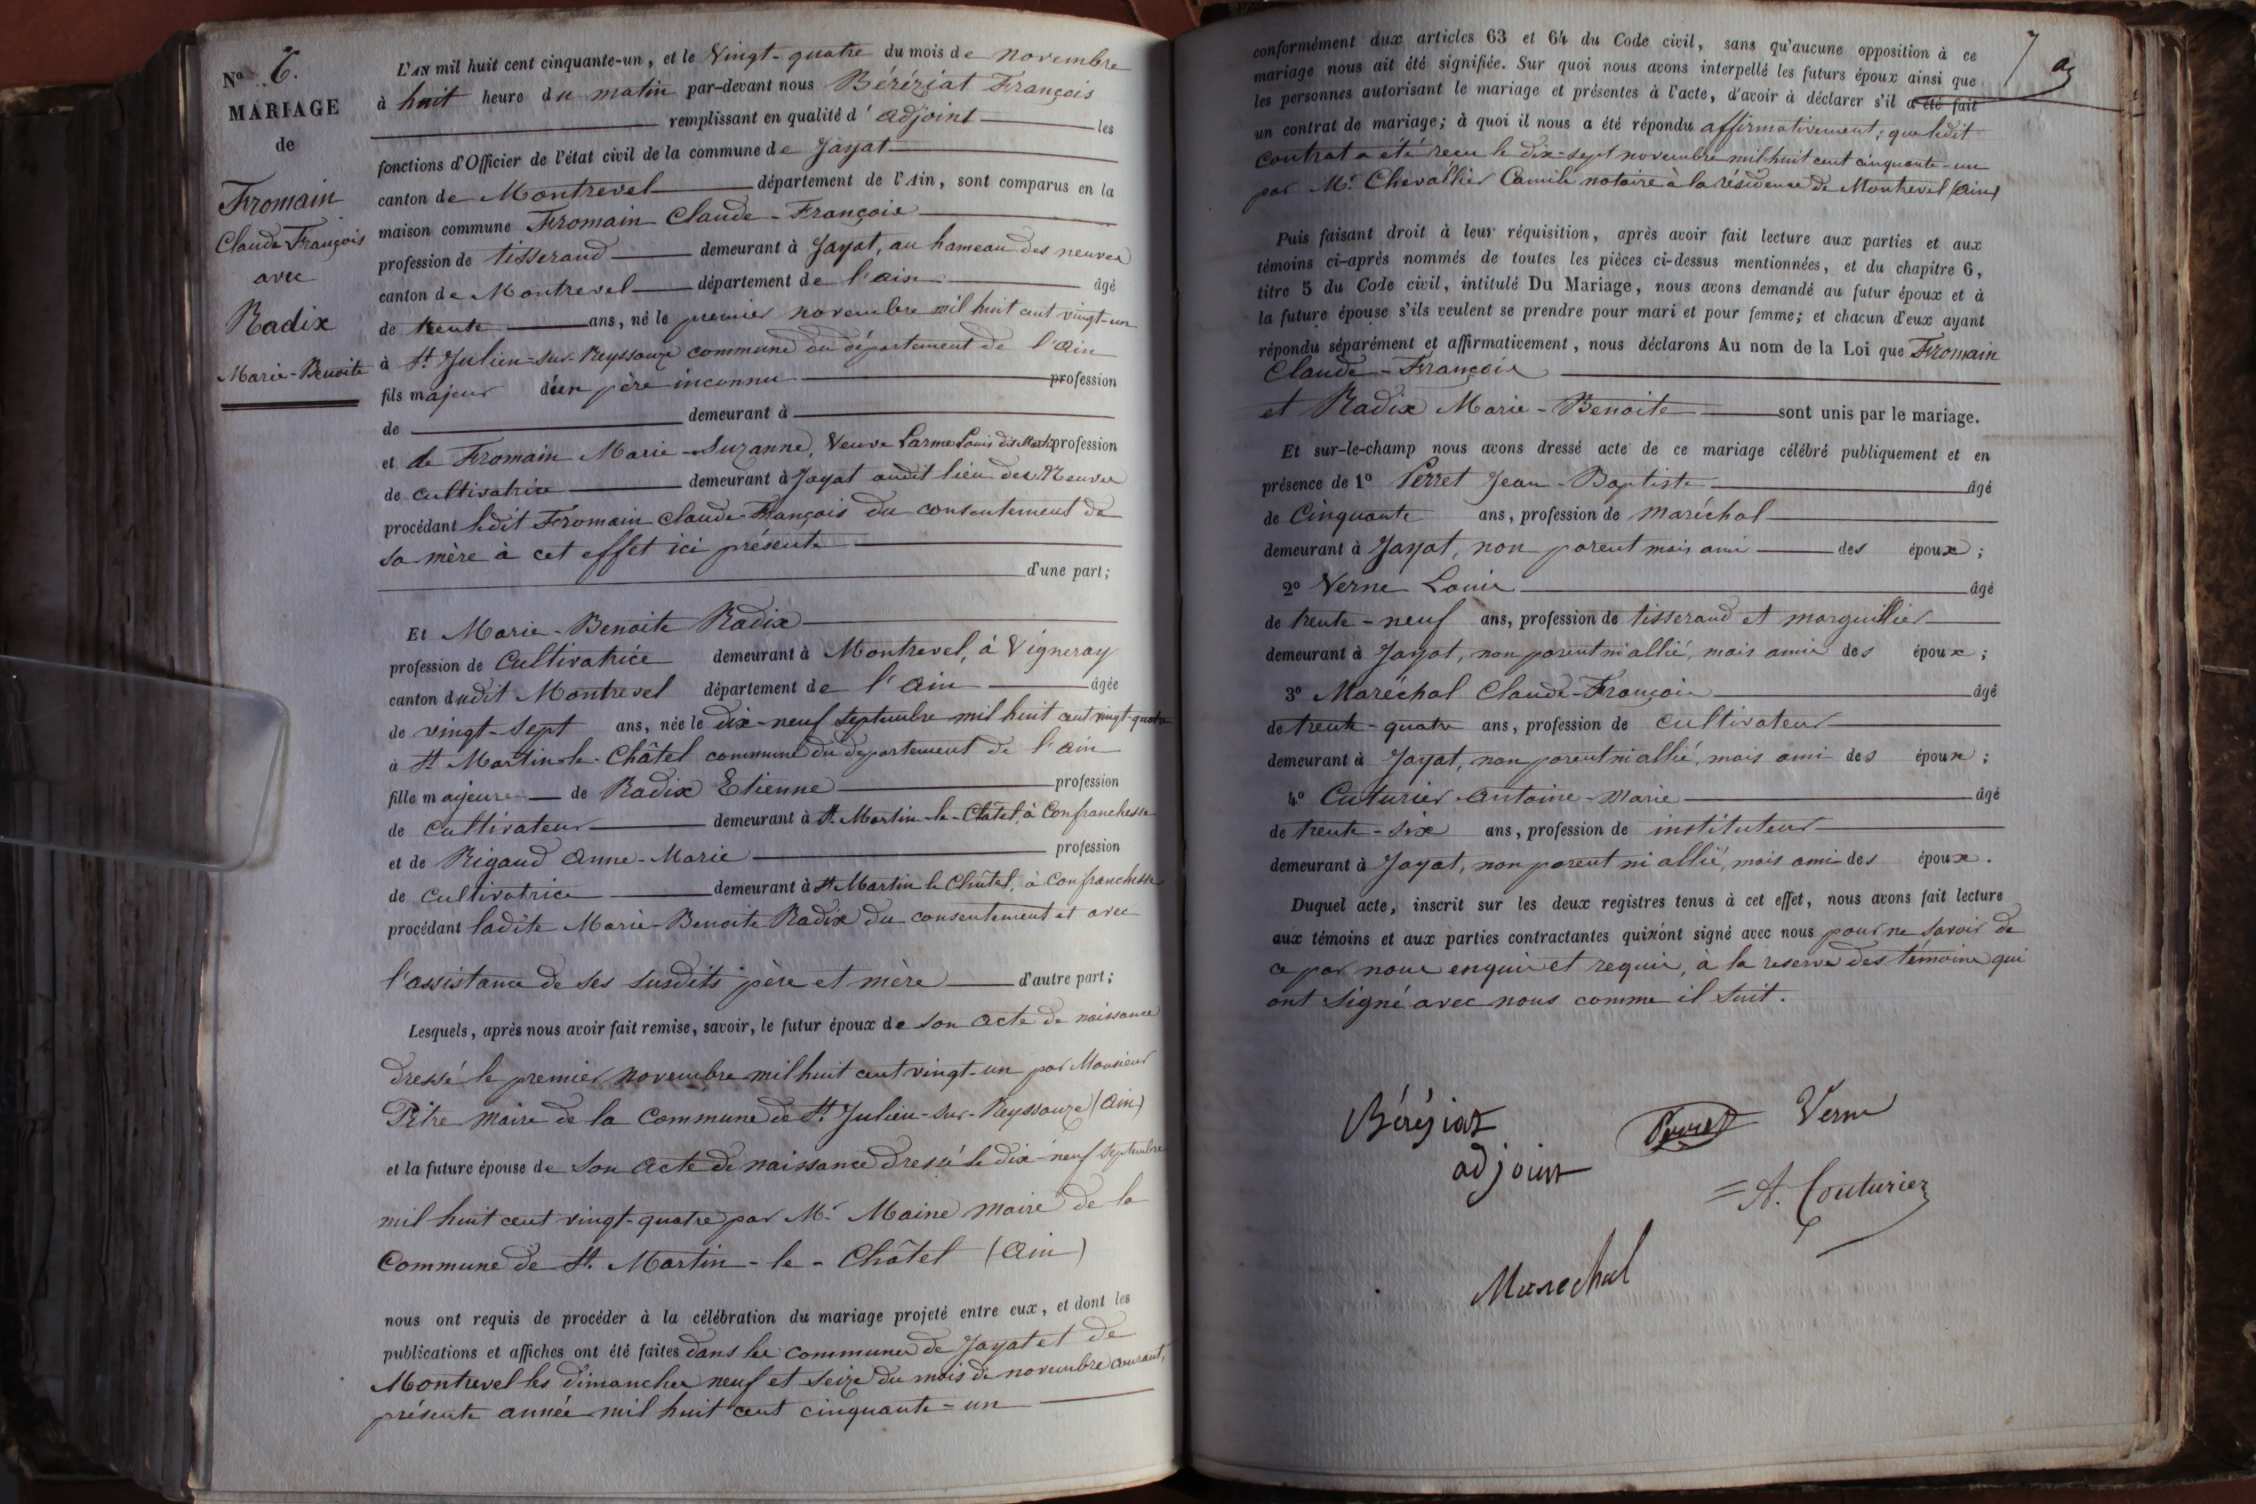 N.o 6.
MARIAGE
de
Fromain
Claude François
avec
Radix
Marie-Benoite
L'AN mil huit cent cinquante-un, et le Vingt-quatre du mois de novembre
à huit heure du matin par-devant nous Béréziat François
remplissant en qualité d'adjoint les
fonctions d'Officier de l'état civil de la commune de Jayat
canton de Montrevel département de l'Ain, sont comparus en la
maison commune Fromain Claude-François
profession de tisserand demeurant à Jayat, au hameau des neuves
canton de Montrevel département de l'ain âgé
de trente ans, né le premier novembre mil huit cent vingt-un
à St Julien-sur-Reyssouze commune du département de l'ain
fils majeur d'un père inconnu profession
de demeurant à
et de Fromain Marie-Suzanne, Veuve Parme Louis dit profession
de cultivatrice demeurant à Jayat audit lieu des Neuves
procédant ledit Fromain Claude-François du consentement de
sa mère à cet effet ici présente
d'une part;
Et Marie-Benoite Radix
profession de Cultivatrice demeurant à Montrevel, à Vigneray
canton dudit Montrevel département de l'ain âgée
de vingt-sept ans, née le dix-neuf septembre mil huit cent vingt-quatre
à St Martin-le-Châtel commune du département de l'ain
fille majeure de Radix Etienne profession
de cultivateur demeurant à St Martin-le-Châtel, à Confranchesse
et de Rigaud Anne-Marie profession
de cultivatrice demeurant à St Martin le Châtel, à Confranchesse
procédant ladite Marie-Benoite Radix du consentement et avec
l'assistance de ses susdits père et mère d'autre part;
Lesquels, après nous avoir fait remise, savoir, le futur époux de son acte de naissance
dressé le premier novembre mil huit cent vingt-un par Monsieur
Pitre maire de la Commune de St Julien-sur-Reyssouze (ain)
et la future épouse de son acte de naissance dressé le dix-neuf septembre
mil huit cent vingt-quatre par Mr Maine maire de la
Commune de St. Martin-le-Châtel (ain)
nous ont requis de procéder à la célébration du mariage projeté entre eux, et dont les
publications et affiches ont été faites dans les communes de Jayat et de
Montrevel les dimanches neuf et seize du mois de novembre courant,
présente année mil huit cent cinquante-un
7
conformément aux articles 63 et 64 du Code civil, sans qu'aucune opposition à ce
mariage nous ait été signifiée. Sur quoi nous avons interpellé les futurs époux ainsi que
les personnes autorisant le mariage et présentes à l'acte, d'avoir à déclarer s'il a été fait
un contrat de mariage; à quoi il nous a été répondu affirmativement; que ledit
contrat a été reçu le dix-sept novembre mil huit cent cinquante-un
par Mr Chevallier Camile notaire à la résidence de Montrevel (ain)
Puis faisant droit à leur réquisition, après avoir fait lecture aux parties et aux
témoins ci-après nommés de toutes les pièces ci-dessus mentionnées, et du chapitre 6,
titre 5 du Code civil, intitulé Du Mariage, nous avons demandé au futur époux et à
la future épouse s'ils veulent se prendre pour mari et pour femme; et chacun d'eux ayant
répondu séparément et affirmativement, nous déclarons Au nom de la Loi que Fromain
Claude-François
et Radix Marie-Benoite sont unis par le mariage.
Et sur-le-champ nous avons dressé acte de ce mariage célébré publiquement et en
présence de 1o Perret Jean-Baptiste âgé
de Cinquante ans, profession de maréchal
demeurant à Jayat, non parent mais ami des époux;
2o Verne Louis âgé
de trente-neuf ans, profession de tisserand et marguillier
demeurant à Jayat, non parent ni allié, mais amis des époux;
3o Maréchal Claude-François âgé
de trente-quatre ans, profession de cultivateur
demeurant à Jayat, non parent ni allié, mais ami des époux;
4o Cuturier Antoine-Marie âgé
de trente-six ans, profession de instituteur
demeurant à Jayat, non parent ni allié, mais ami des époux.
Duquel acte, inscrit sur les deux registres tenus à cet effet, nous avons fait lecture
aux témoins et aux parties contractantes qui n'ont signé avec nous pour ne savoir de
ce par nous enquis et requis, à la reserve des témoins qui
ont signé avec nous comme il suit.
Béréziat
adjoint
Perret
Verne
A. Couturier
Marechal